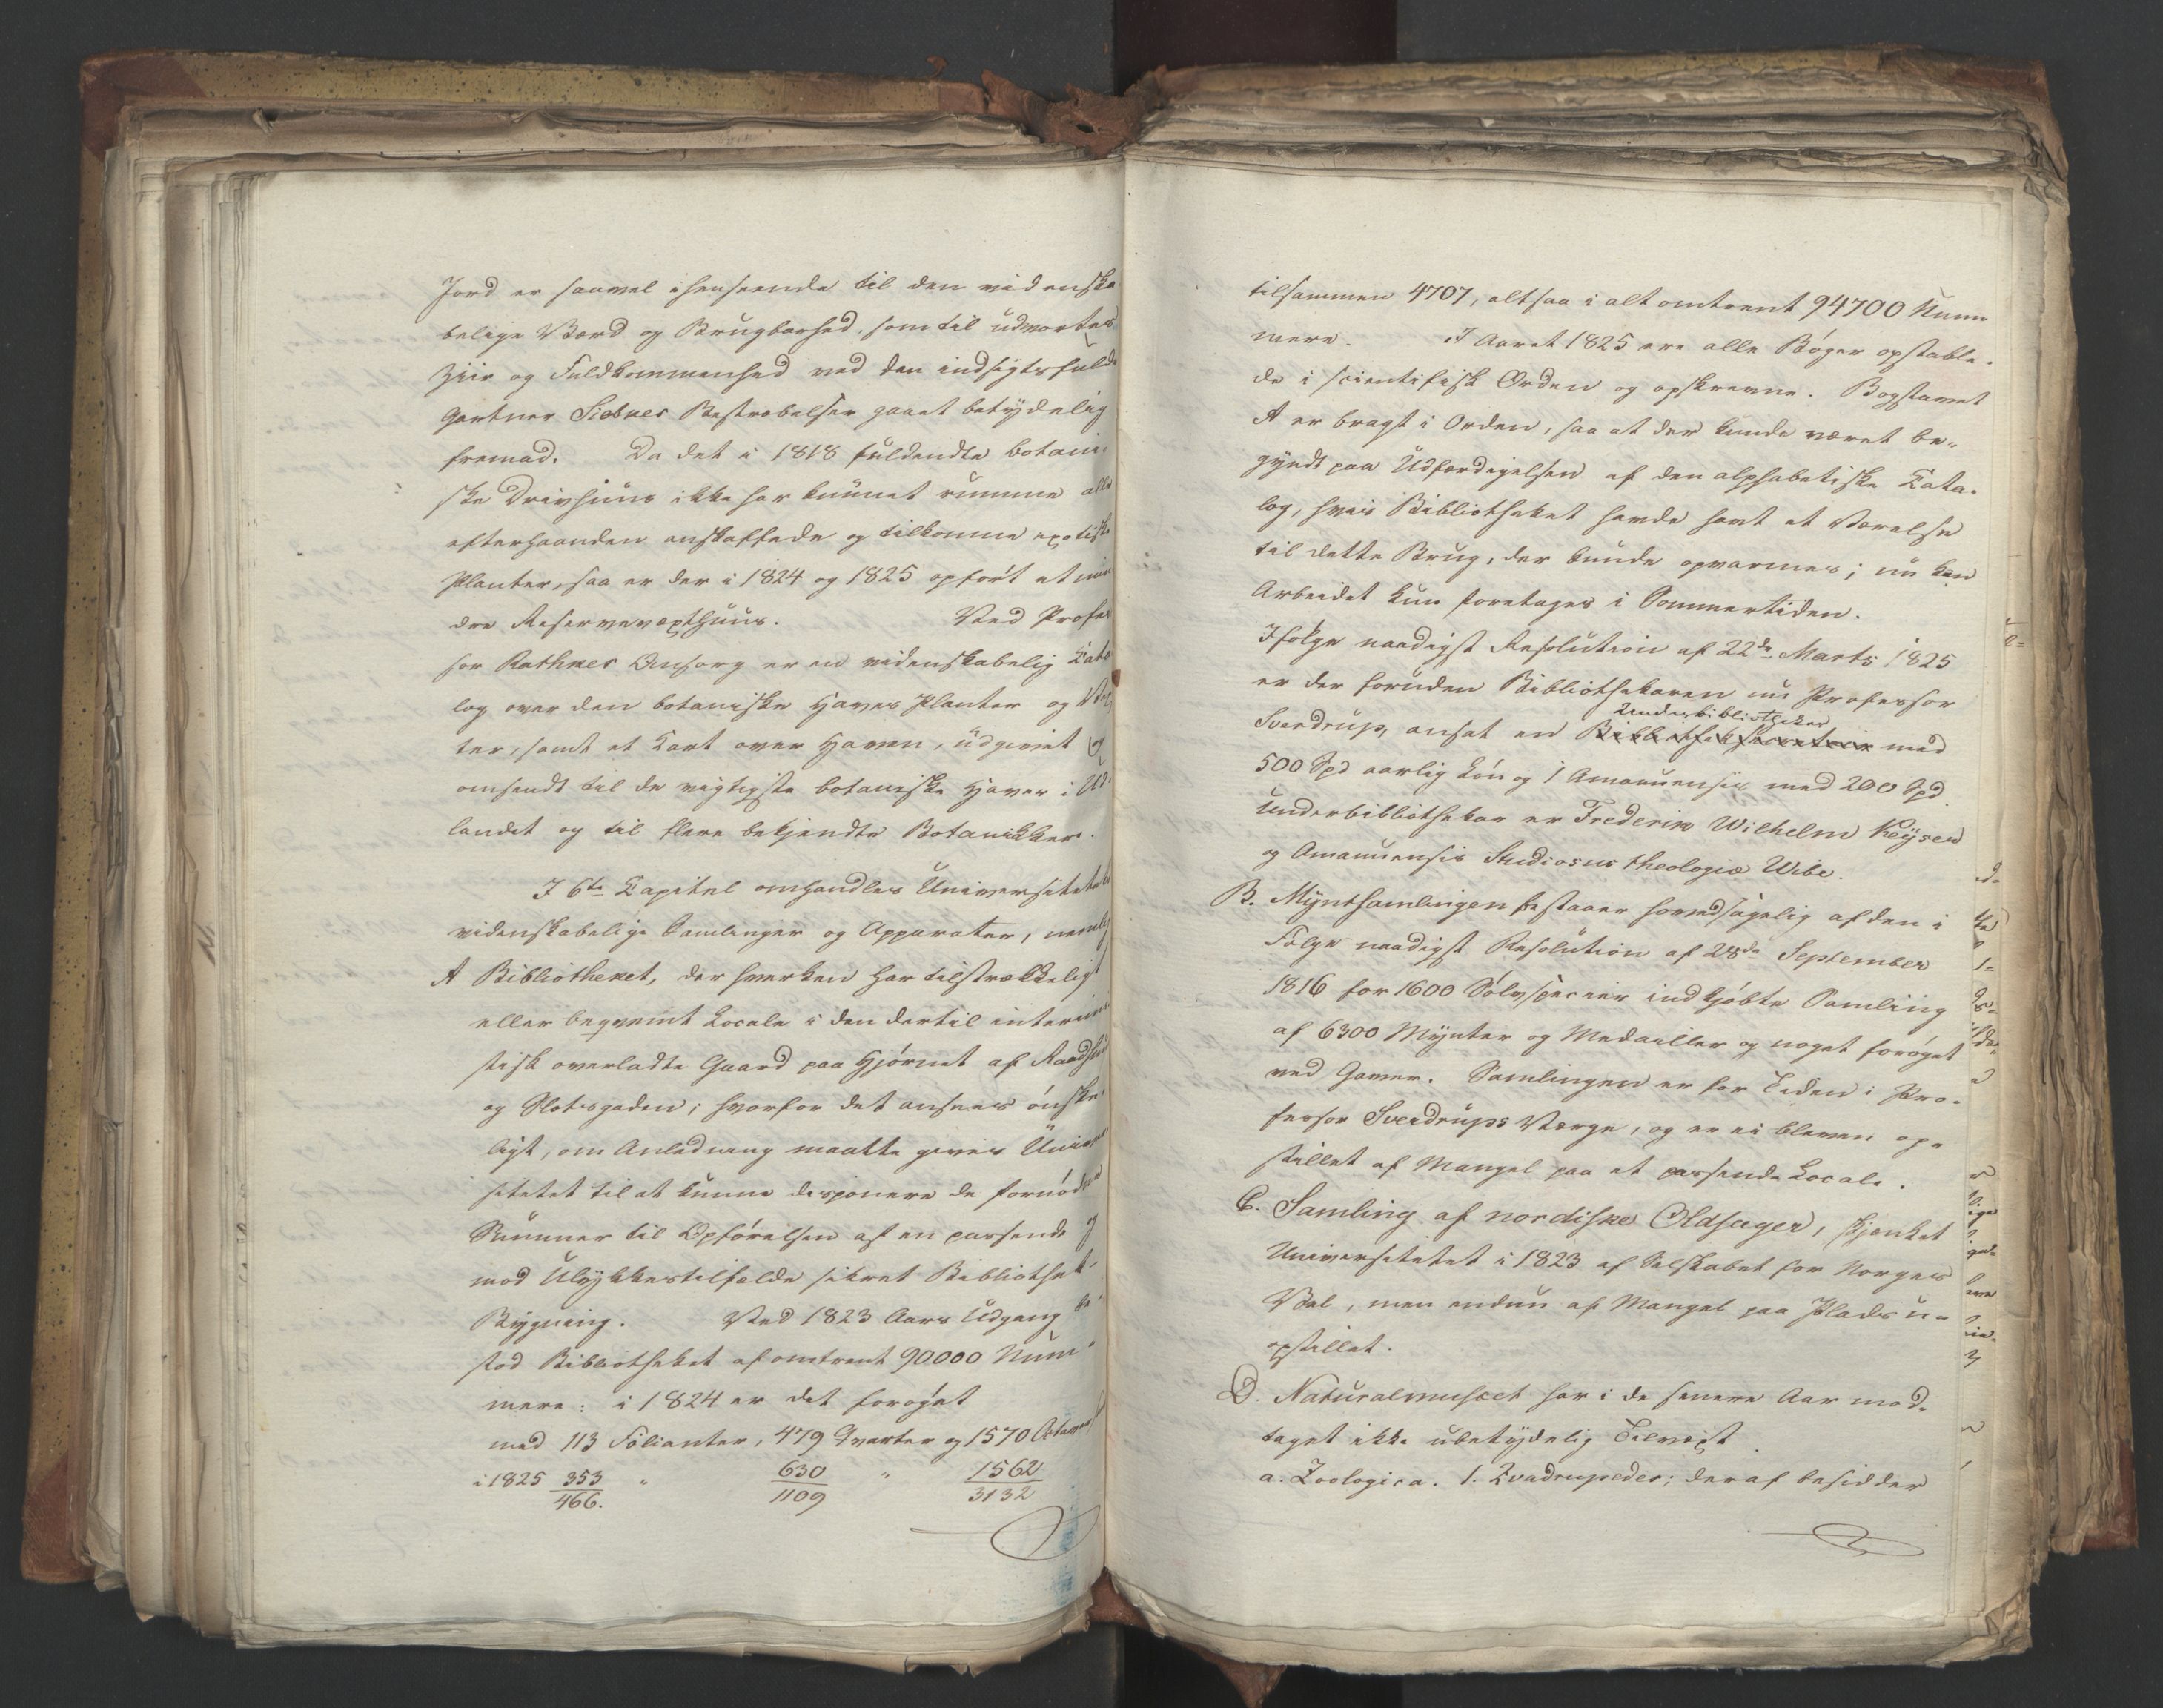 Jord er saavel ihenseende til den videnska
belige Værd og Brugbarhed, som til udvortes
Ziir og Fuldkommenhed ved den indsigtsfulde
Gartner Siebkes Bestræbelser gaaet betydelig
fremad. Da det i 1818 fuldendte botani-
ske Drivhuus ikke har kunnet rumme alle
efterhaanden anskaffede og tilkomne exotiske
Planter, saa er der i 1824 og 1825 opført et min
dre Reservevæxthuus. Ved Profes
sor Rathkes Omsorg er en videnskabelig Cata
log over den botaniske Haves Planter og Væx
ter, samt et Kart over Haven, udgivet og
omsendt til de vigtigste botaniske Haver i Ud-
landet og til flere bekjendte Botanikkere.
I 6te Capitel omhandles Universitetets
videnskabelige Samlinger og Apparater, nemlig
A Bibliotheket, der hverken har tilstrækkeligt
eller beqvemt Locale i den dertil interimi
stisk overladte Gaard paa Hjørnet af Raadhuus
og Slotsgaden; hvorfor det ansees ønske-
ligt, om Anledning maatte gives Univer
sitetet til at kunne disponere de fornødne
Summer til Opførelsen af en passende og
mod Ulykkestilfælde sikret Bibliothek-
Bygning. Ved 1823 Aars Udgang be-
stod Bibliotheket af omtrent 90000 Num-
mere: i 1824 er det forøget
med 113 Folianter, 479 Qvarter og 1570 Octaver
i 1825 353 " 630 " 1562
466. 1109 3132
tilsammen 4707, altsaa i alt omtrent 94700 Num
mere. I Aaret 1825 ere alle Bøger opstable-
de i scientifisk Orden og opskrevne. Bogstavet
A er bragt i Orden, saa at der kunde været be-
gyndt paa Udfærdigelsen af den alphabetiske Cata-
log, hvis Bibliotheket havde havt et Værelse
til dette Brug, der kunde opvarmes; nu kan
Arbeidet kun foretages i Sommertiden.
Ifølge naadigst Resolution af 22de Marts 1825
er der foruden Bibliothekaren nu Professor
Underbibliotheker
Sverdrup, ansat en Bibliotheksecretair med
500 Spd aarlig Løn og 1 Amanuensis med 200 Spd.
Underbibliothekar er Frederik Wilhelm Keysen
og Amanuensis Studiosus theologiæ Wibe.
B. Myntsamlingen bestaaer hovedsagelig af den i
Følge naadigst Resolution af 28de September
1816 for 1600 Sølvspecier indkjøbte Samling
af 6300 Mynter og Medailler og noget forøget
ved Gaver. Samlingen er for Tiden i Pro-
fessor Sverdrups Værge, og er ei bleven op-
stillet af Mangel paa et passende Locale.
C. Samling af nordiske Oldsager, skjenket
Universitetet i 1823 af Selskabet for Norges
Vel, men endnu af Mangel paa Plads u-
opstillet.
D. Naturalmusæet har i de senere Aar mod-
taget ikke ubetydelig Tilvæxt.
a. Zoologica. 1. Qvadrupeder; deraf besidder